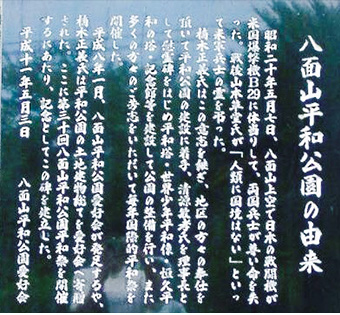 八面山平和公園の由来
昭和二十年五月七日、八面山上空で日本の戦闘機が
米国爆撃機B29に体当りして、両国兵士が尊い命を失
った。戦後山木隼雲氏が「人類に国境はない」といっ
て米軍兵士の霊を弔った。
楠木正義氏はこの意志を継ぎ、地区の方々の奉仕を
頂いて平和公園の建設に着手、清源敏孝氏を理事長と
して慰霊碑をはじめ平和塔・世界少年平和像・恒久平
和の塔・記念館等を建設して公園の整備を行い、また
多くの方々のご芳志をいただいて毎年国際的平和祭を
開催した。
平成八年一月、八面山平和公園愛好会が発足するや、
楠木正義氏は平和公園の土地建物総てを愛好会へ寄贈
された。ここに第三十回八面山平和公園平和祭を開催
するにあたり、記念としてこの碑を建立した。
平成十一年五月三日
八面山平和公園愛好会